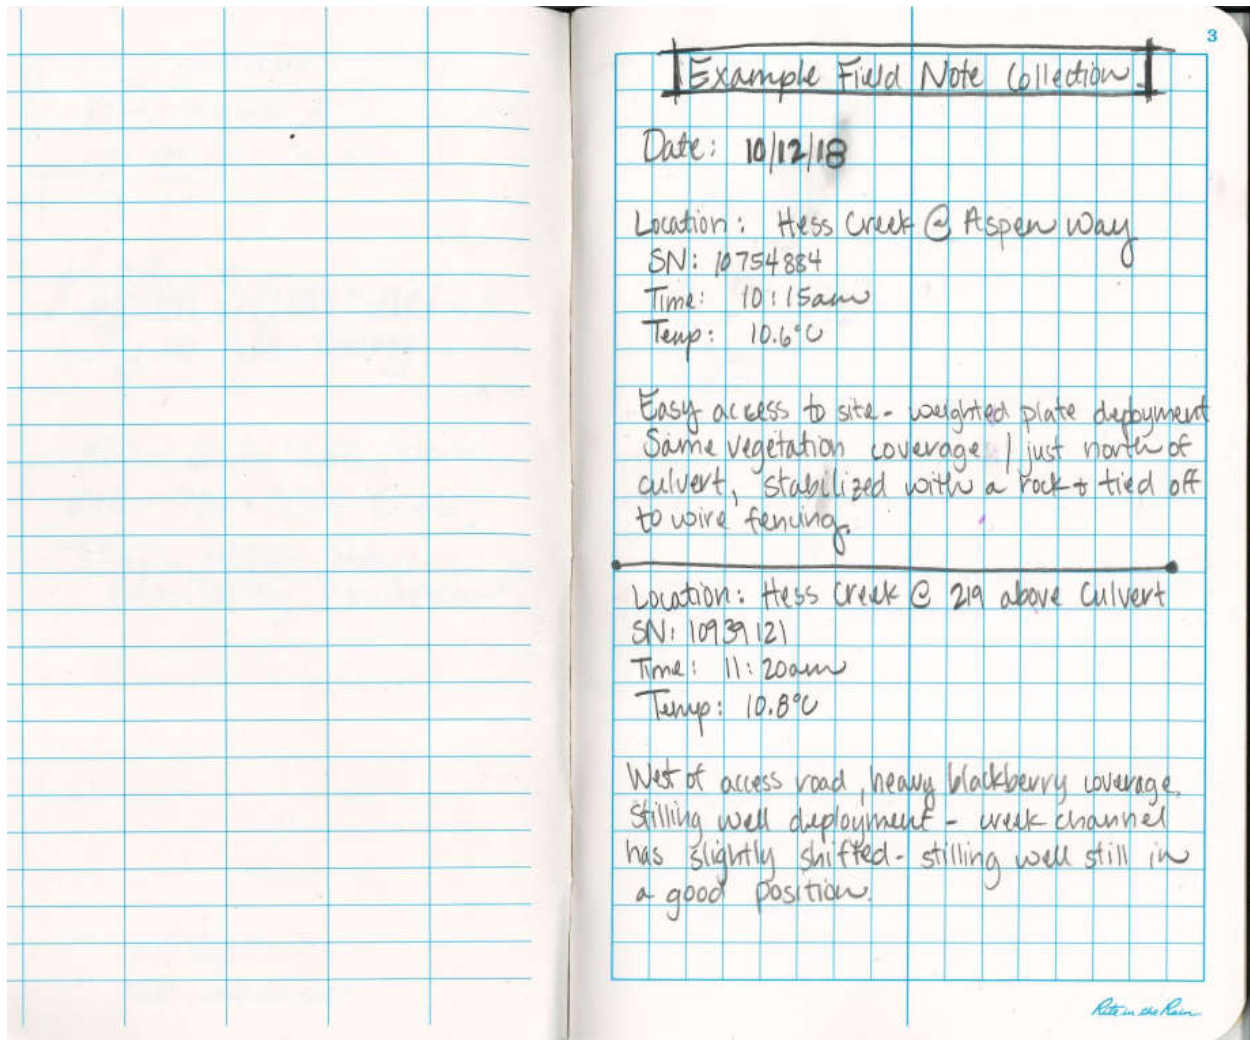 3
Example Field Note Collection
Date: 10/12/18
Location: Hess Creek @ Aspen Way
SN: 10754884
Time: 10:15am
Temp: 10.6°C
Easy access to site - weighted plate deployment
Same vegetation coverage / just north of
culvert, stabilized with a rock + tied off
to wire fencing.
Location: Hess Creek @ 219 above Culvert
SN: 10939121
Time: 11:20am
Temp: 10.8°C
West of access road, heavy blackberry coverage.
Stilling well deployment - creek channel
has slightly shifted - stilling well still in
a good position.
Rite in the Rain